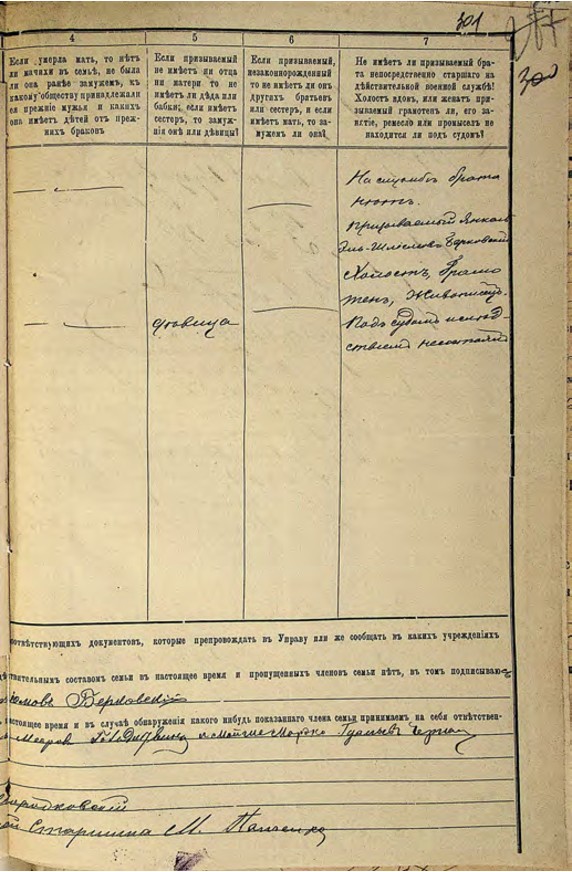 301
300
4
5
6
7
Если умерла мать, то нѣтъ
ли мачихи въ семьѣ, не была
ли она ранѣе замужемъ, къ
какому обществу принадлежали
ея прежніе мужья и какихъ
она имѣетъ дѣтей отъ преж-
нихъ браковъ
Если призываемый
не имѣетъ ни отца
ни матери, то не
имѣетъ ли дѣда или
бабки; если имѣетъ
сестеръ, то замуж-
нія онѣ или дѣвицы?
Если призываемый,
незаконнорожденный
то не имѣетъ ли онъ
другихъ братьевъ
или сестеръ, и если
имѣетъ мать, то за-
мужемъ ли она?
Не имѣетъ ли призываемый бра-
та непосредственно старшаго на
дѣйствительной военной службѣ?
Холостъ вдовъ, или женатъ при-
зываемый грамотенъ ли, его за-
нятіе, ремесло или промыселъ не
находится ли подъ судомъ?
На службѣ брата
нѣтъ.
Призываемый Янкель
Берковскій
Холостъ, Грамо
тенъ, Живописецъ.
Подъ судомъ и слѣд-
ствіемъ несостоялъ
дѣвица
соотвѣтствующихъ документовъ, которые препровождать въ Управу или же сообщать въ какихъ учрежденіяхъ
ствительнымъ составомъ семьи въ настоящее время и пропущенныхъ членовъ семьи нѣтъ, въ томъ подписываюсь
Берковскій
настоящее время и въ случаѣ обнаруженія какого нибудь показаннаго члена семьи принимаемъ на себя отвѣтствен-
Мееров
Старшина М.